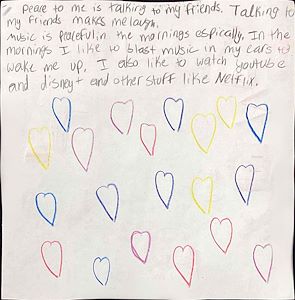 Peace to me is talking to my friends. Talking to
my friends makes me laugh.
music is peaceful in the mornings espically. In the
mornings I like to blast music in my ears to
wake me up, I also like to watch youtube
and disney+ and other stuff like Netflix.